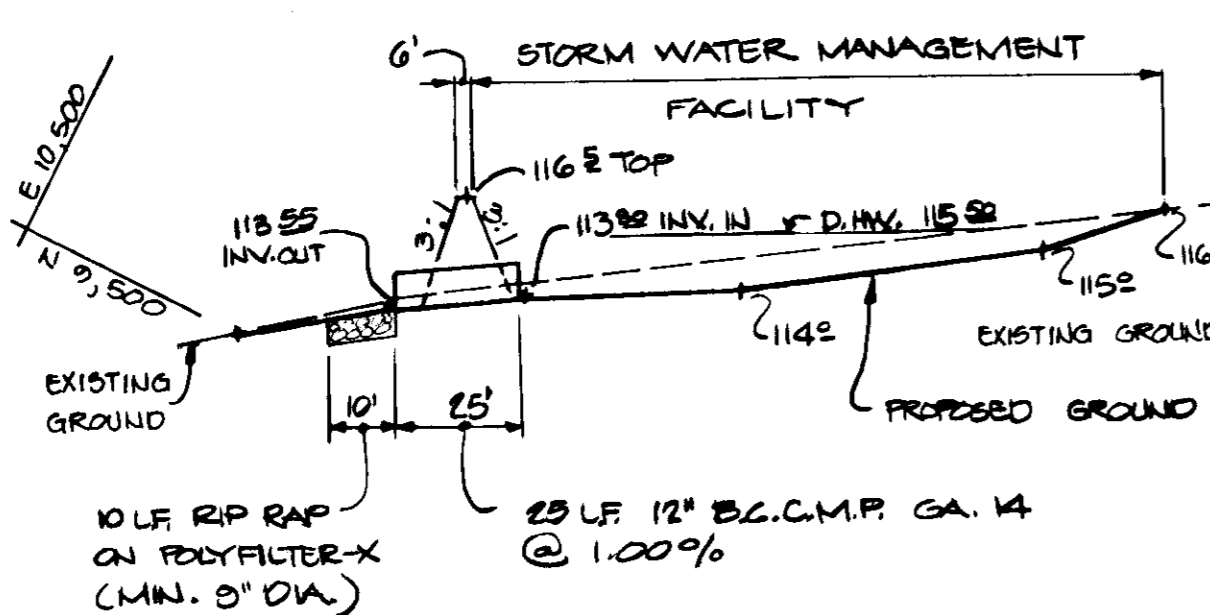 6'
STORM WATER MANAGEMENT
FACILITY
E 10,500
N 9,500
116 5 TOP
113 55
INV. OUT
3:1
3:1
113 80 INV. IN
D.H.W. 115 50
116
115 0
114 0
EXISTING GROUND
EXISTING
GROUND
PROPOSED GROUND
10'
25'
10 L.F. RIP RAP
ON POLYFILTER-X
(MIN. 9" DIA.)
25 L.F. 12" B.C.C.M.P. GA. 14
@ 1.00%